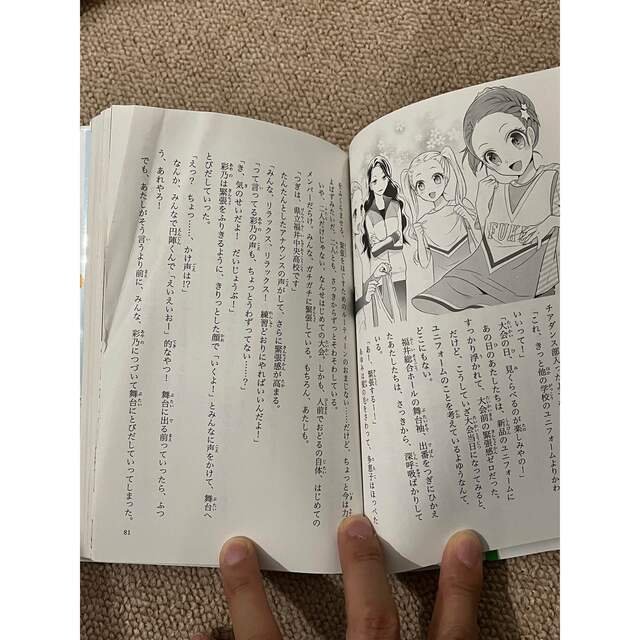 FUKUI
チアダンス部人ってよ
「これ、きっと他の学校のユニフォームよりかわ
いいって！」
「大会の日、見くらべるのが楽しみやの！」
あの日のあたしたちは、新品のユニフォームに
すっかり浮かれて、大会前の緊張感ゼロだった。
だけど、こうしていざ大会当日になってみると、
ユニフォームのことを考えているよゆうなんて、
どこにもない。
福井総合ホールの舞台袖。出番をつぎにひかえ
たあたしたちは、さっきから、深呼吸ばかりして
いる。
「あー、緊張する！」
よばすみたいだ。二人とも、さっきからずっとそわそわしている。
いや、二人だけじゃない。なんせはじめての大会。しかも、人前でおどる自体、はじめての
メンバーだらけ。みんな、ガチガチに緊張している。もちろん、あたしも。
「つぎは、県立福井中央高校です」
たんたんとしたアナウンスの声がして、さらに緊張感が高まる。
「みんな、リラックス、リラックス！　練習どおりにやればいいんだよ！」
「って言ってる彩乃の声も、ちょっとうわずってない……？」
「き、気のせいだよ！　だいじょうぶ！」
彩乃は緊張をふりきるように、きりっとした顔で「いくよ！」とみんなに声をかけて、舞台へ
とびだしていった。
「えっ？　ちょっ……、かけ声は？」
なんか、みんなで円陣くんで「えいえいおー」的なやつ！　舞台に出る前っていったら、ふつ
う、あれやろ！
でも、あたしがそう言うより前に、みんな、彩乃につづいて舞台にとびだしていってしまった。
81